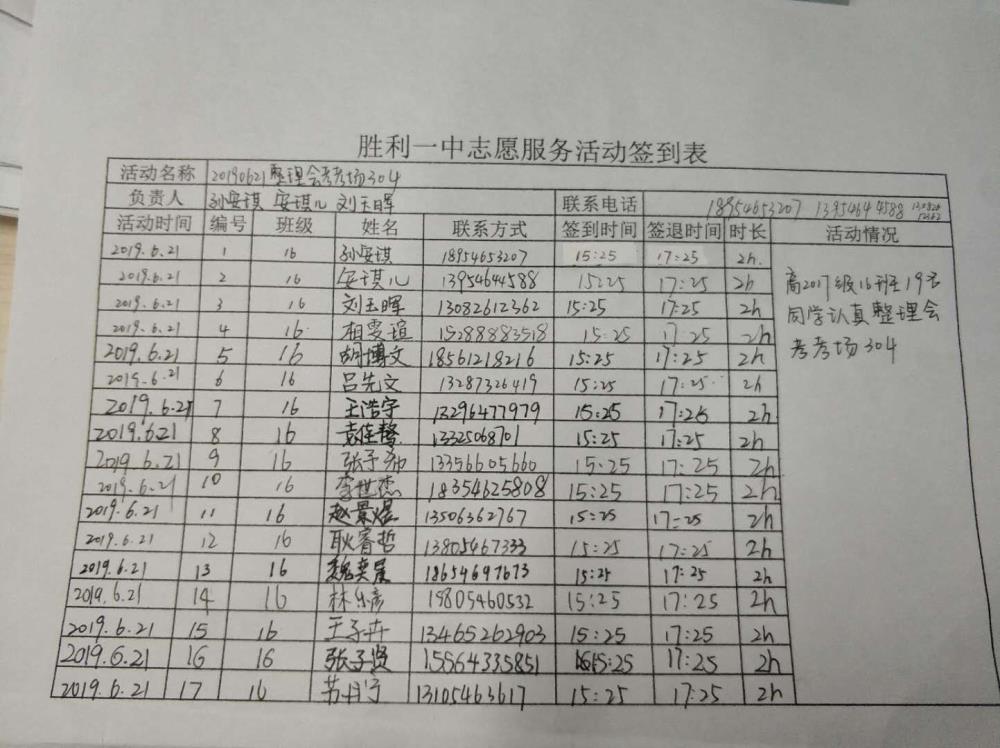 胜利一中志愿服务活动签到表
活动名称 20190621整理会考考场304
负责人 孙安琪 安琪儿 刘玉晖 联系电话 18954653207 13954644588
活动时间 编号 班级 姓名 联系方式 签到时间 签退时间 时长 活动情况
2019.6.21 1 16 孙安琪 18954653207 15:25 17:25 2h.
2019.6.21 2 16 安琪儿 13954644588 15:25 17:25 2h
2019.6.21 3 16 刘玉晖 13082612362 15:25 17:25 2h
2019.6.21 4 16 相雯瑄 15288883518 15:25 17:25 2h
2019.6.21 5 16 胡博文 18561218216 15:25 17:25 2h
2019.6.21 6 16 吕先文 13287326419 15:25 17:25 2h
2019.6.21 7 16 王浩宇 13296477979 15:25 17:25 2h
2019.6.21 8 16 13325068701 15:25 17:25 2h
2019.6.21 9 16 张予 13356605660 15:25 17:25 2h
2019.6.21 10 16 李世杰 18354625808 15:25 17:25 2h
2019.6.21 11 16 赵景煜 13506362767 15:25 17:25 2h
2019.6.21 12 16 耿睿哲 13805467333 15:25 17:25 2h
2019.6.21 13 16 魏奕 18654697673 15:25 17:25 2h
2019.6.21 14 16 林乐彦 15:25 17:25 2h
2019.6.21 15 16 王子卉 13465262903 15:25 17:25 2h
2019.6.21 16 16 张子贤 15564335851 15:25 17:25 2h
2019.6.21 17 16 苏 13105463617 15:25 17:25 2h
高2017级16班19名
同学认真整理会
考考场304